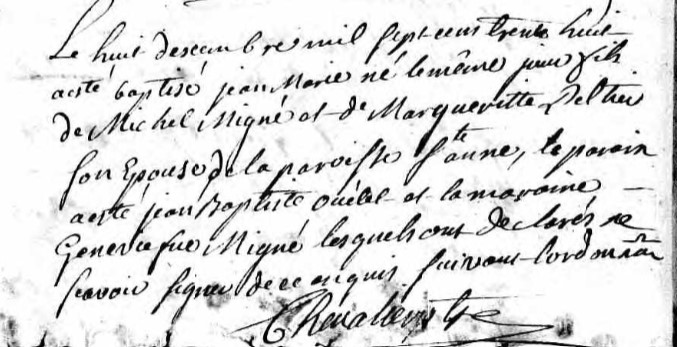 Le huit descembre mil sept cens trente huit
a esté baptisé jean Marie né le même jour fils
de Michel Migné et de Margueritte Peltier
son Epouse de la paroisse Ste anne, le parain
a esté jean Baptiste Ouélet et la maraine
Geneviefve Migné lesquels ont declarés ne
scavoir signer de ce enquis suivant l'ordonnan